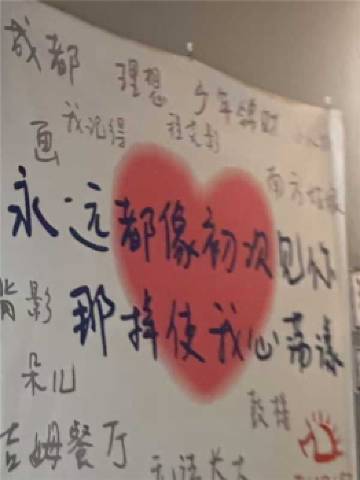 成都 理想 少年锦时
画 我记得 程艾影
南方姑娘
永远都像初次见你
那样使我心荡漾
背影
朵儿
鼓楼
吉姆餐厅
无法长大